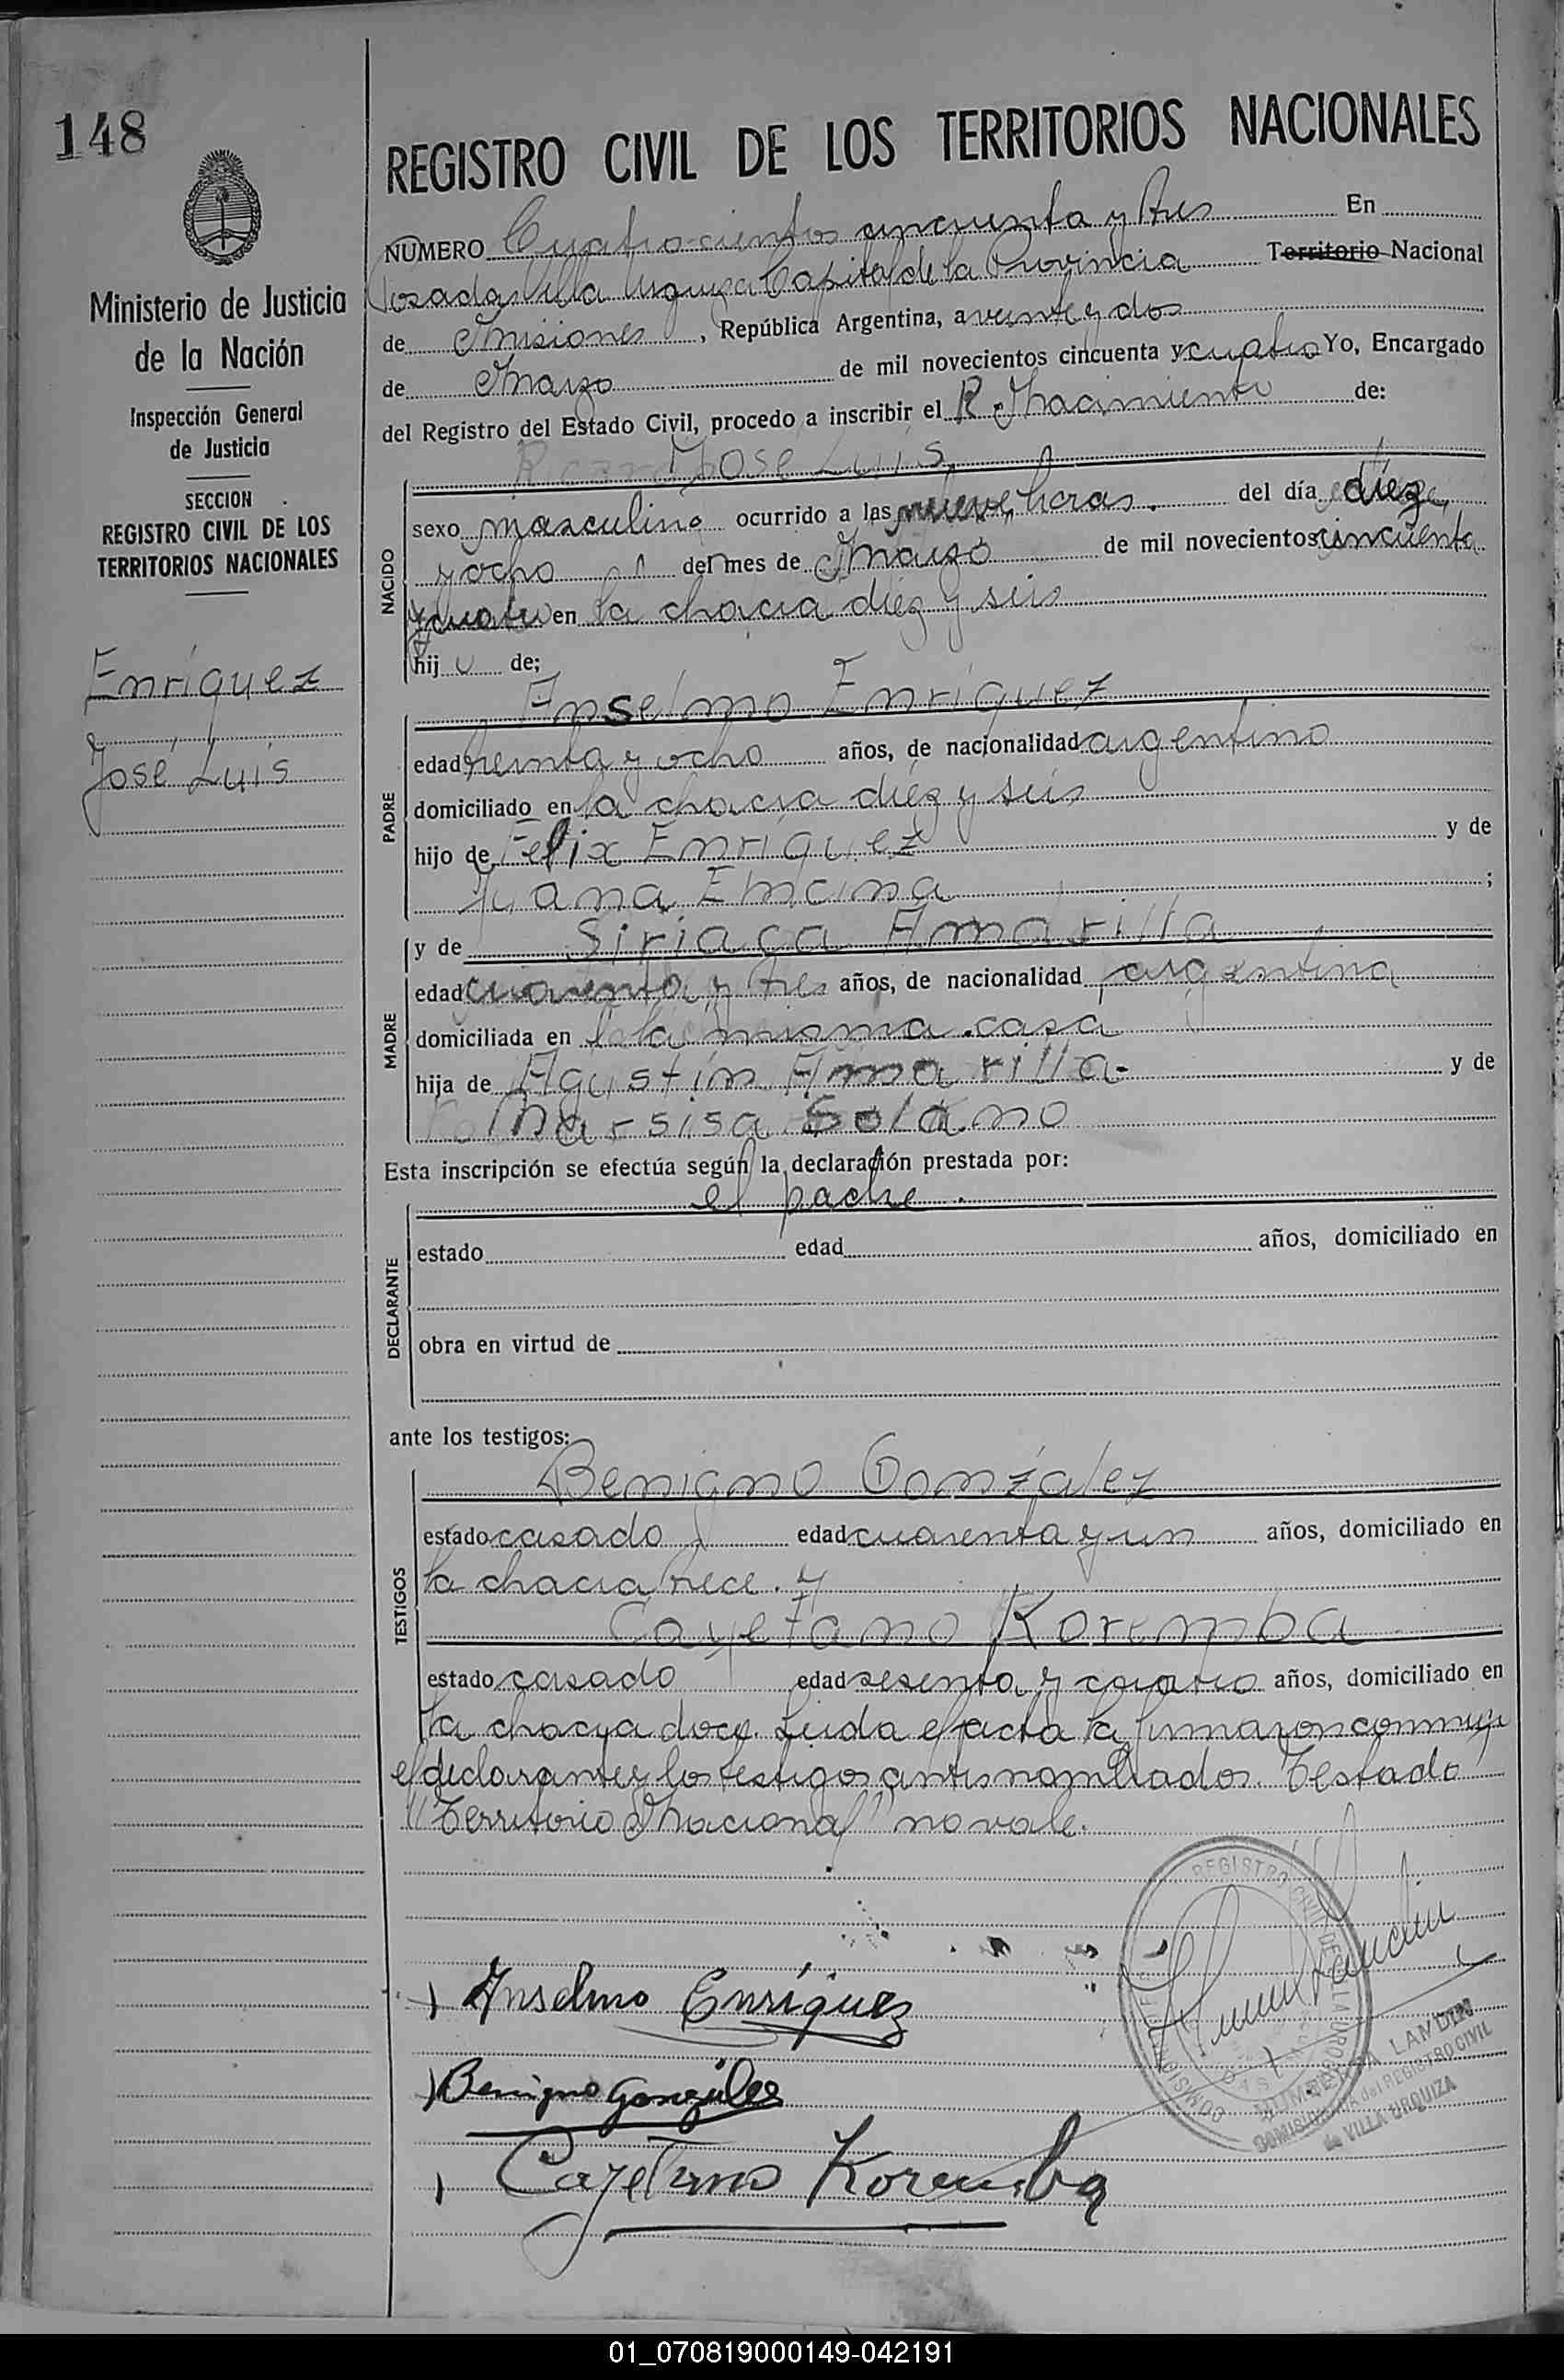 148
REGISTRO CIVIL DE LOS TERRITORIOS NACIONALES
Ministerio de Justicia
de la Nación
Inspección General
de Justicia
SECCION
REGISTRO CIVIL DE LOS
TERRITORIOS NACIONALES
Enríquez
José Luis
NUMERO Cuatrocientos cincuenta y tres En
Posadas Villa Urquiza Capital de la Provincia Territorio Nacional
de Misiones, República Argentina, a veinte y dos
de Marzo de mil novecientos cincuenta y cuatro Yo, Encargado
del Registro del Estado Civil, procedo a inscribir el R. Nacimiento de:
José Luis
NACIDO
sexo masculino ocurrido a las nueve horas. del día diez
y ocho del mes de Marzo de mil novecientos cincuenta
y cuatro en la chacra diez y seis
hijo de;
Anselmo Enríquez
PADRE
edad treinta y ocho años, de nacionalidad argentino
domiciliado en la chacra diez y seis
hijo de Felix Enríquez y de
Juana Encina ;
y de Siriaca Amarilla
MADRE
edad cuarenta y tres años, de nacionalidad argentina
domiciliada en la misma casa
hija de Agustín Amarilla- y de
Narsisa Solano
Esta inscripción se efectúa según la declaración prestada por:
el padre.
DECLARANTE
estado edad años, domiciliado en
obra en virtud de
ante los testigos:
Benigno González
TESTIGOS
estado casado edad cuarenta y un años, domiciliado en
la chacra trece. y
Cayetano Koremba
estado casado edad sesenta y cuatro años, domiciliado en
la chacra doce. Leida el acta la firmaron conmigo
el declarante y los testigos antes nombrados. Testado
"Territorio Nacional" no vale.
Anselmo Enríquez
Benigno González
Cayetano Koremba
REGISTRO CIVIL DE LA
LANDIN
COMISIONADA del REGISTRO CIVIL
de VILLA URQUIZA
01_070819000149-042191